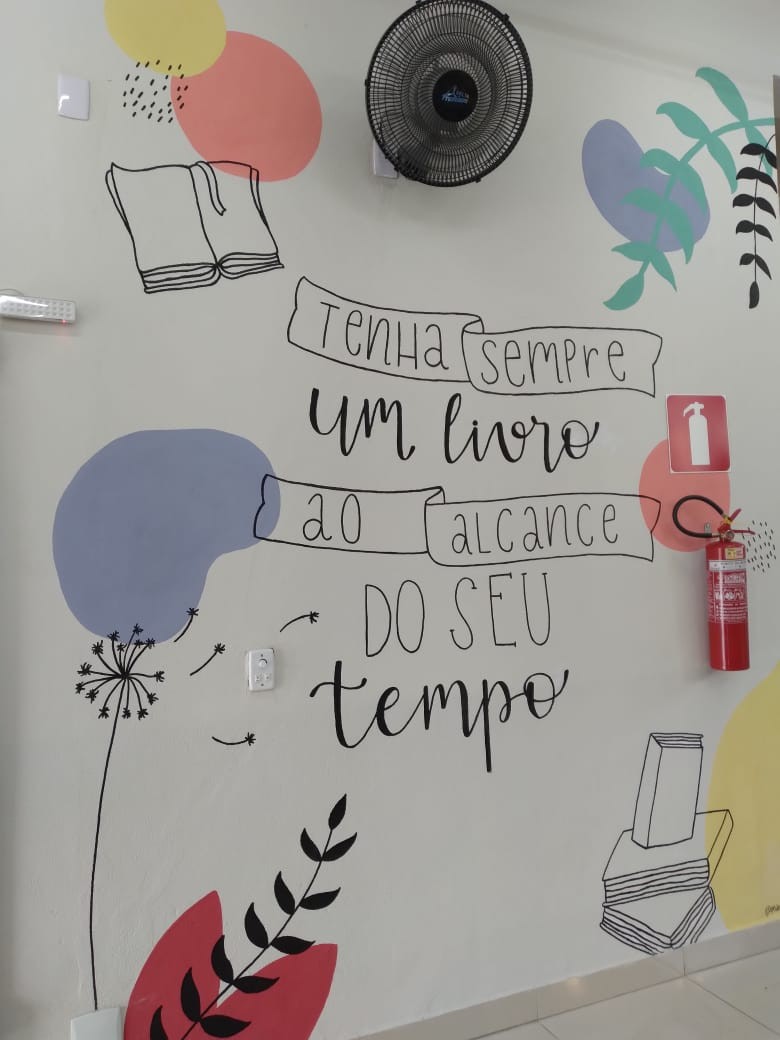 TENHA SEMPRE
um livro
AO ALCANCE
DO SEU
tempo